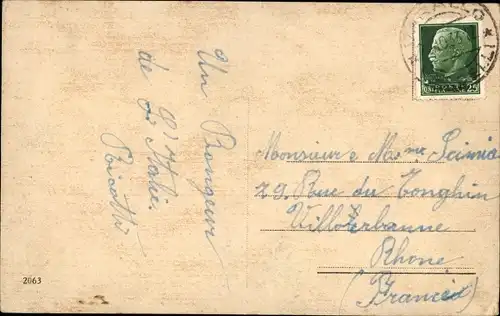 Un Bongeur
de l'Italie.
Ricetti
Monsieur e Mme Scinia
29. Rue du Tonghin
Villeerbanne
Rhone
(Francia)
2063
25